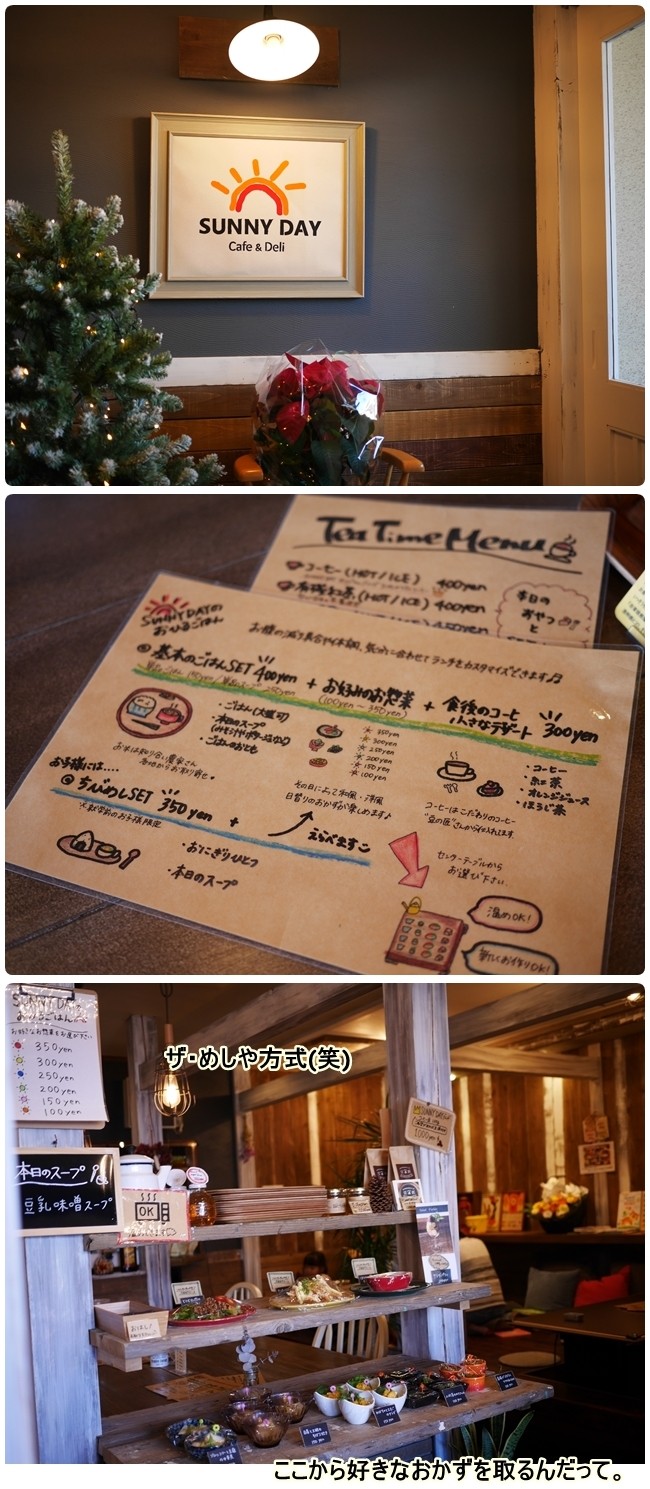 SUNNY DAY
Cafe & Deli
Tea Time Menu
コーヒー(HOT/ICE) 400yen
有機紅茶(HOT/ICE) 400yen
450yen
本日の
おやつ
と
SUNNY DAYの
おひるごはん
お腹の減り具合や体調、気分に合わせてランチをカスタマイズできます♫
基本のごはんSET 400yen + お好みのお惣菜 + 食後のコーヒー
小さなデザート 300yen
(100yen〜350yen)
・ごはん(大盛可)
・本日のスープ
・ごはんのおとも
350yen
300yen
250yen
200yen
150yen
100yen
・コーヒー
・紅茶
・オレンジジュース
・ほうじ茶
コーヒーはこだわりのコーヒー
"豆の匠"さんから仕入れます。
その日によって和風、洋風
日替りのおかずが楽しめます♪
お子様には....
ちびめしSET 350yen +
※就学前のお子様限定
えらべます
・おにぎりひとつ
・本日のスープ
センターテーブルから
お選び下さい。
温めOK!
新しくお作りOK!
ザ・めしや方式(笑)
SUNNY DAY
おひるごはん
お好きなお惣菜をお選び下さい
350yen
300yen
250yen
200yen
150yen
100yen
本日のスープ
豆乳味噌スープ
OK
SUNNY DAY
1,000yen
おはし
ここから好きなおかずを取るんだって。